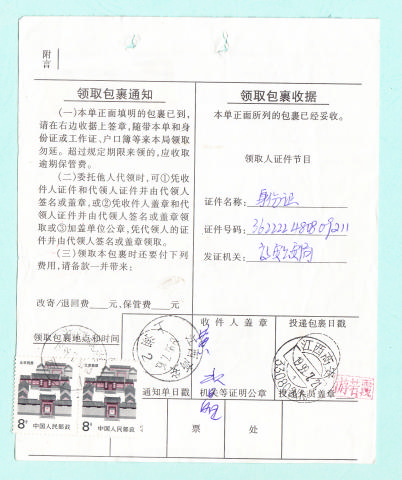 附
言
领取包裹通知
(一)本单正面填明的包裹已到,
请在右边收据上签章,随带本单和身
份证或工作证、户口簿等来本局领取
勿延。超过规定期限来领的,应收取
逾期保管费。
(二)委托他人代领时,可①凭收
件人证件和代领人证件并由代领人
签名或盖章,或②凭收件人盖章和代
领人证件并由代领人签名或盖章领
取或③加盖单位公章,凭代领人的证
件并由代领人签名或盖章领取。
(三)领取本包裹时还要付下列
费用,请备款一并带来:
改寄/退回费 元,保管费 元
领取包裹地点和时间
领取包裹收据
本单正面所列的包裹已经妥收。
领取人证件节目
证件名称: 身份证
证件号码: 362222480809211
发证机关:
收件人盖章
投递包裹日戳
江西高安
通知单日戳
机关等证明公章
投递人员盖章
北京民居
8分 中国人民邮政
北京民居
8分 中国人民邮政
票
处